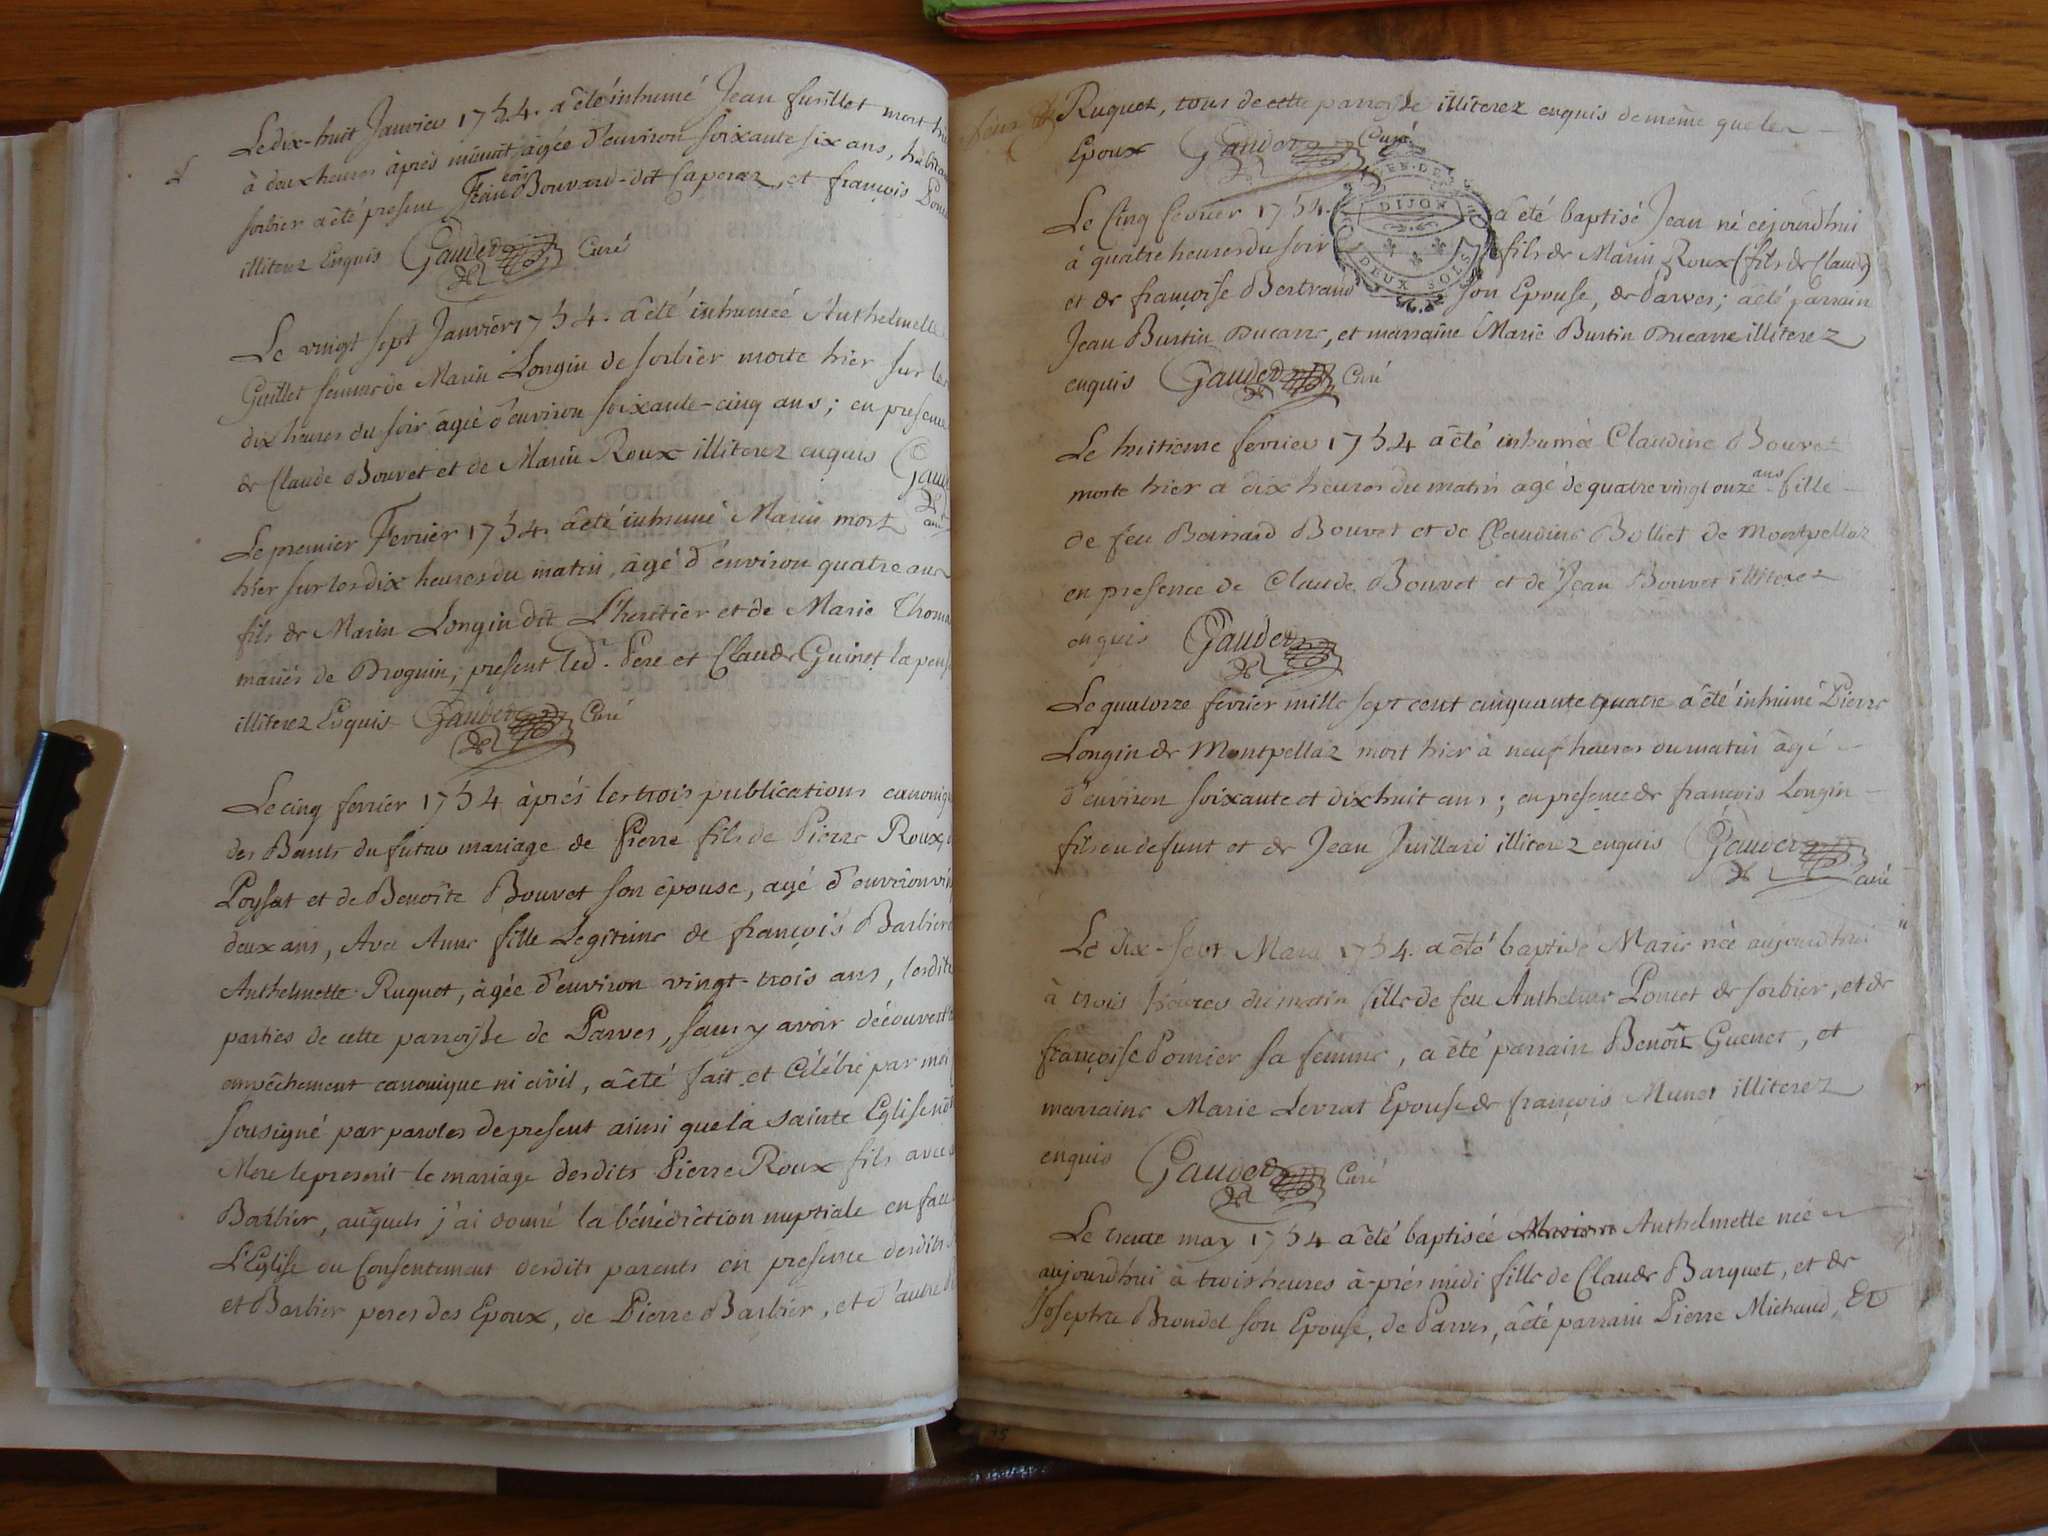 Le dix-huit Janvier 1754. a été inhumé Jean fusillet mort
à deux heures après minuit agée d'environ soixante six ans,
sorbier a été present Bouvard-dit Caporaz, et françois
illiterez Enquis Gaudet Curé
Le vingt sept Janvier 1754. a été inhumée Anthelmette
Guillet femme de Marin Longin de sorbier morte hier sur les
dix heures du soir agée d'environ soixante-cinq ans; en presence
de Claude Bouvet et de Marin Roux illiterez enquis
Le premier Fevrier 1754. a été inhumé Marin mort
hier sur les dix heures du matin, âgé d'environ quatre ans
fils de Marin Longin dit L'heritier et de Marie
mariés de Droguin; present led. Pere et Claude Guinet
illiterez Enquis Gaudet Curé
Le cinq fevrier 1754 après les trois publications
des Bants du futur mariage de Pierre fils de Pierre Roux,
Poysat et de Benoîte Bouvet son épouse, agé d'environ
deux ans, Avec Anne fille Legitime de françois Barbier
Anthelmette Ruquet, agée d'environ vingt-trois ans,
parties de cette parroisse de Parves, sans y avoir découvert
empêchement canonique ni civil, a été fait et Célébré par moi
sousigné par paroles de present ainsi que la sainte Eglise
Mere le prescrit le mariage desdits Pierre Roux fils avec
Barbier, auquels j'ai donné la bénédiction nuptiale en face
L'Eglise du Consentement desdits parents en presence desdits
et Barbier peres des Epoux, de Pierre Barbier, et d'autre
Ruquet, tous de cette parroisse illiterez enquis de même que les
Epoux Gaudet Curé
GEN. DE
DIJON
DEUX SOLS
Le Cinq fevrier 1754. a été baptisé Jean né cejourdhui
à quatre heures du soir fils de Marin Roux (fils de Claude)
et de françoise Bertrand son Epouse, de Parves; a été parrain
Jean Burtin Ducarre, et marraine Marie Burtin Ducarre illiterez
enquis Gaudet Curé
Le huitieme fevrier 1754 a été inhumée Claudine Bouvet
morte hier a dix heures du matin agé de quatre vingt onze ans fille
de feu Bouvet et de Claudine Bolliet de Montpellaz
en presence de Claude Bouvet et de Jean Bouvet illiterez
enquis Gaudet
Le quatorze fevrier mille sept cent cinquante quatre a été inhumé Pierre
Longin de Montpellaz mort hier à neuf heures du matin âgé
d'environ soixante et dix huit ans; en presence de françois Longin
fils du defunt et de Jean Juillard illiterez enquis Gaudet
Curé
Le dix-sept Mars 1754. a été baptisé Marie née aujourdhui
à trois heures du matin fille de feu Anthelme Poncet de sorbier, et de
françoise Pomier sa femme, a été parrain Benoît Guenet, et
marraine Marie Levrat Epouse de françois Munet illiterez
enquis Gaudet Curé
Le trente may 1754 a été baptisée Anthelmette née
aujourdhui à trois heures après midi fille de Claude Barquet, et de
Josephte Brondel son Epouse, de Parves, a été parrain Pierre Michaud, Et